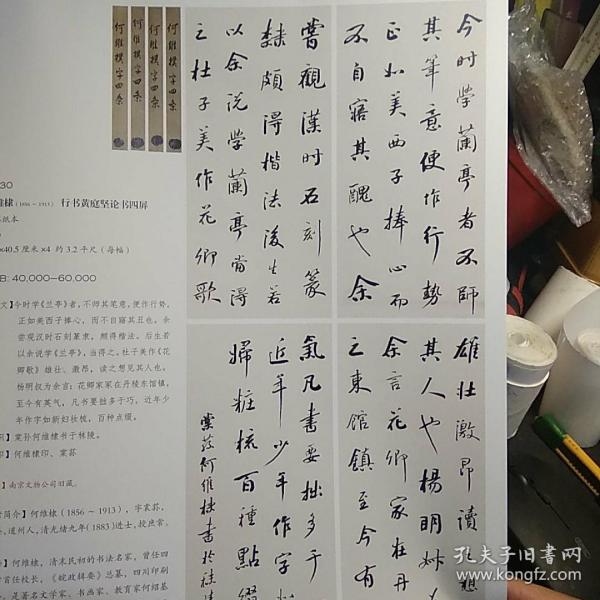 何维朴字四条
何维朴字四条
何维朴字四条
何维朴字四条
今时学蘭亭者不師
其筆意便作行勢
正如美西子捧心而
不自寤其醜也余
嘗觀漢时石刻篆
隸頗得楷法後生若
以余说学蘭亭當得
之杜子美作花卿歌
雄壮激昂读
其人也楊明
余言花卿家在丹
之東馆鎮至今有
氣凡書要拙多于
近年少年作字
婦粧梳百種點綴
棠蓀何维棣書於
30
维棣(1856-1913) 行书黄庭坚论书四屏
纸本
×40.5厘米×4 约3.2平尺(每幅)
B: 40,000-60,000
文】今时学《兰亭》者,不师其笔意,便作行势,
正如美西子捧心,而不自寤其丑也。余
尝观汉时石刻篆隶,颇得楷法。后生若
以余说学《兰亭》,当得之。杜子美作《花
卿歌》雄壮、激昂,读之想见其人也。
杨明叔为余言:花卿家在丹陵东馆镇,
至今有英气,凡书要拙多于巧,近年少
年作字如新妇妆梳,百种点缀。
】棠孙何维棣书于林陵。
】何维棣印、棠荪
】南京文物公司旧藏。
简介】何维棣(1856~1913),字棠荪、
、道州人,清光绪九年(1883)进士,授庶常。
何维棣,清末民初的书法名家,曾任四
首任校长,《皖政辑要》总纂,四川印刷
是著名文学家、书画家、教育家何绍基
孔夫子旧书网
www.kongfz.com